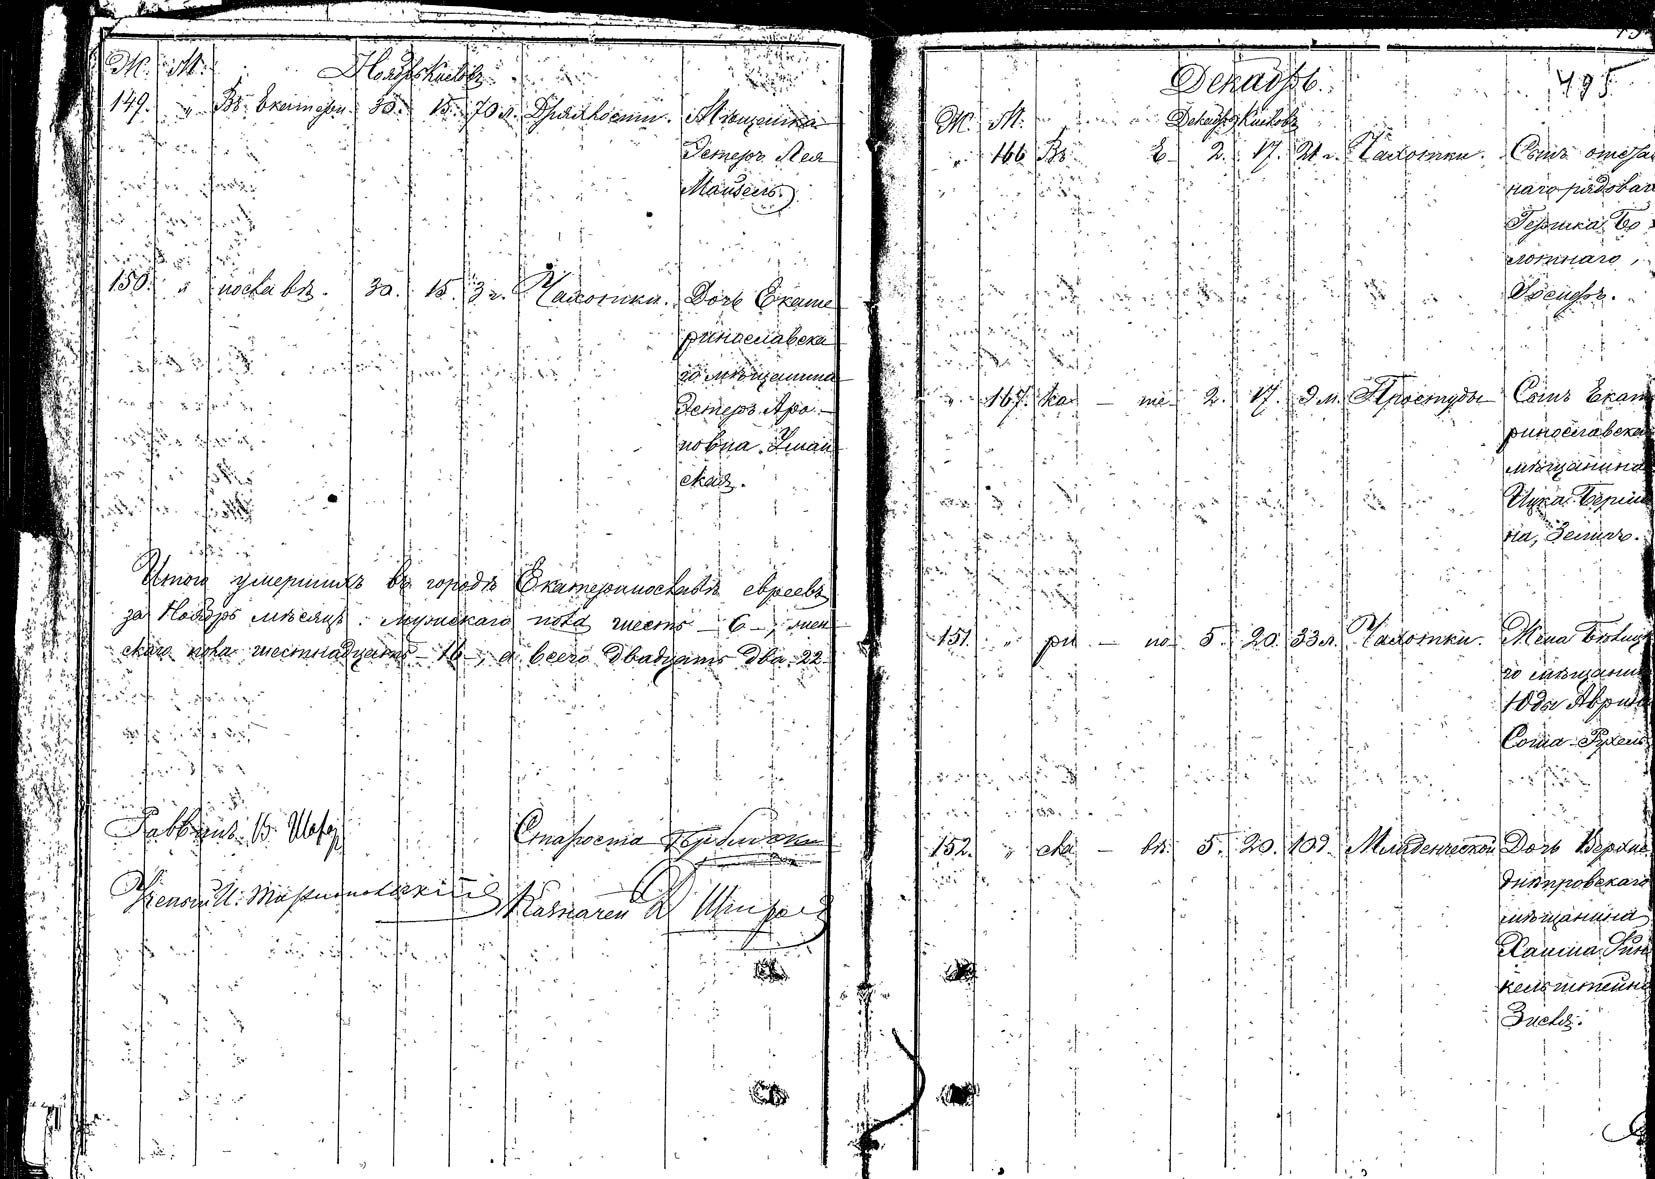 Ж. М. Ноябрь Кислевъ
149. " Въ Екатери 30. 15. 70 л. Дряхлости. Мѣщанка
Эстеръ Лея
Майзель.
150. " нославѣ. 30. 15. 3 г. Чахотки. Дочь Екате
ринославска
го мѣщанина
Эстеръ Аро-
новна Уман
ская.
Итого умершихъ въ городѣ Екатеринославѣ евреевъ
за Ноябрь мѣсяцъ: мужскаго пола шесть - 6 -, жен
скаго пола шестнадцать - 16 -, а всего двадцать два 22
Раввинъ В. Шахор
Староста
Ученый И.
Казначей
Декабрь. 495
Ж. М. Декабрь Кислевъ
" 166 Въ Е- 2. 17. 21 г. Чахотки. Сынъ отста
наго рядоваг
Гершка Бо
лотнаго,
Іосифъ.
" 167. ка - те- 2. 17. 9 м. Простуды Сынъ Екат
ринославска
мѣщанина
Ицка Берли
на, Зеликъ.
151. " ри - но- 5. 20. 33 л. Чахотки. Жена
го мѣщани
Юды
Соша-Рухель
152. " сла - вѣ. 5. 20. 10 д. Младенческой Дочь Верхне
днѣпровскаго
мѣщанина
Хаима Фин
кельштейна
Зисля.